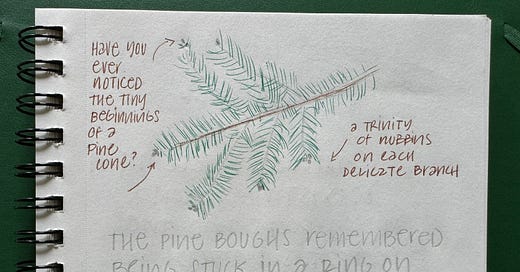 Have you
ever
noticed
the tiny
beginnings
of a
pine
cone?
a trinity
of nubbins
on each
delicate branch
The pine boughs remembered
being stuck in a ring on